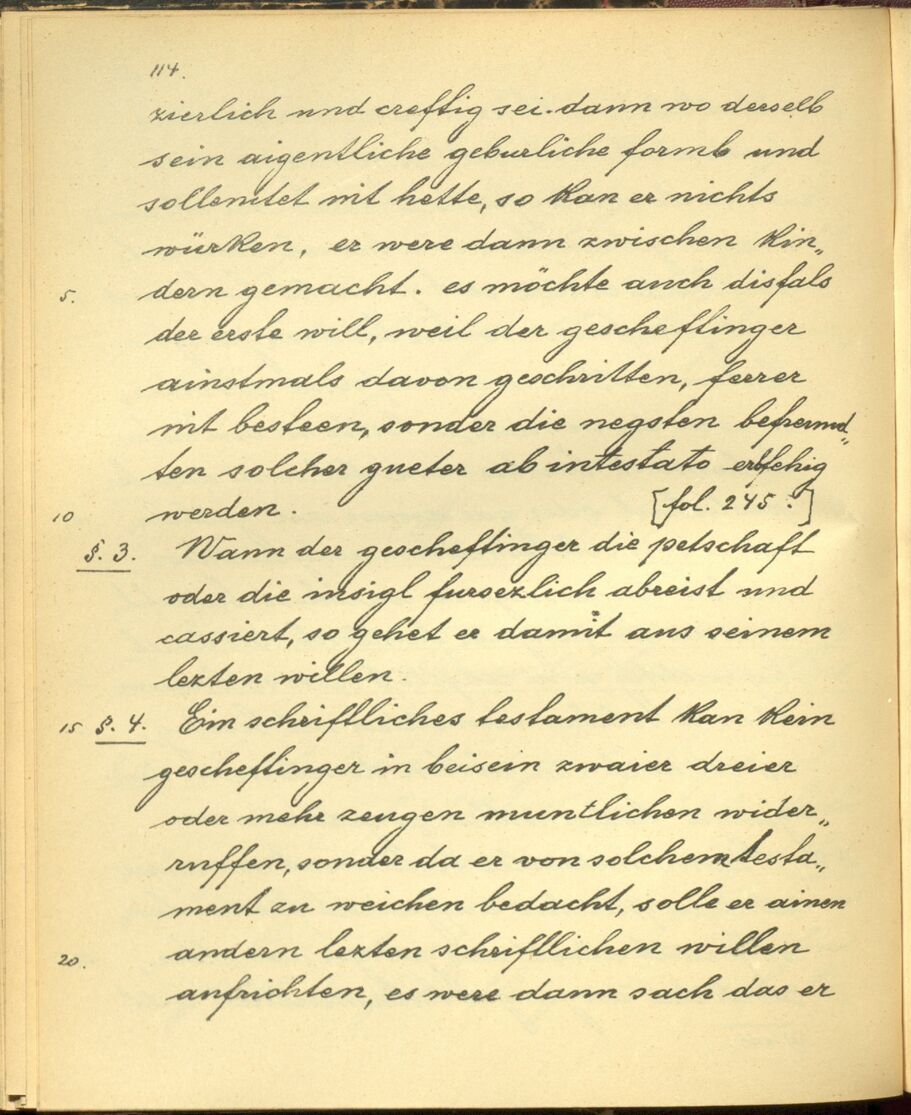 114.
zierlich und creftig sei. dann wo derselb
sein aigentliche geburliche formb und
sollenitet nit hette, so kan er nichts
würken, er were dann zwischen kin„
5. dern gemacht. es möchte auch disfals
der erste will, weil der gescheftinger
ainstmals davon geschritten, ferrer
nit besteen, sonder die negsten befreund„
ten solcher gueter ab intestato erbfehig
10 werden. [fol. 245.]
§. 3. Wann der gescheftinger die petschaft
oder die insigl fursezlich abreist und
cassiert, so gehet er damit aus seinem
lezten willen.
15 §. 4. Ein schriftliches testament kan kein
gescheftinger in beisein zwaier dreier
oder mehr zeugen muntlichen wider„
ruffen, sonder da er von solchem testa„
ment zu weichen bedacht, solle er ainen
20. andern lezten schriftlichen willen
aufrichten, es were dann sach das er